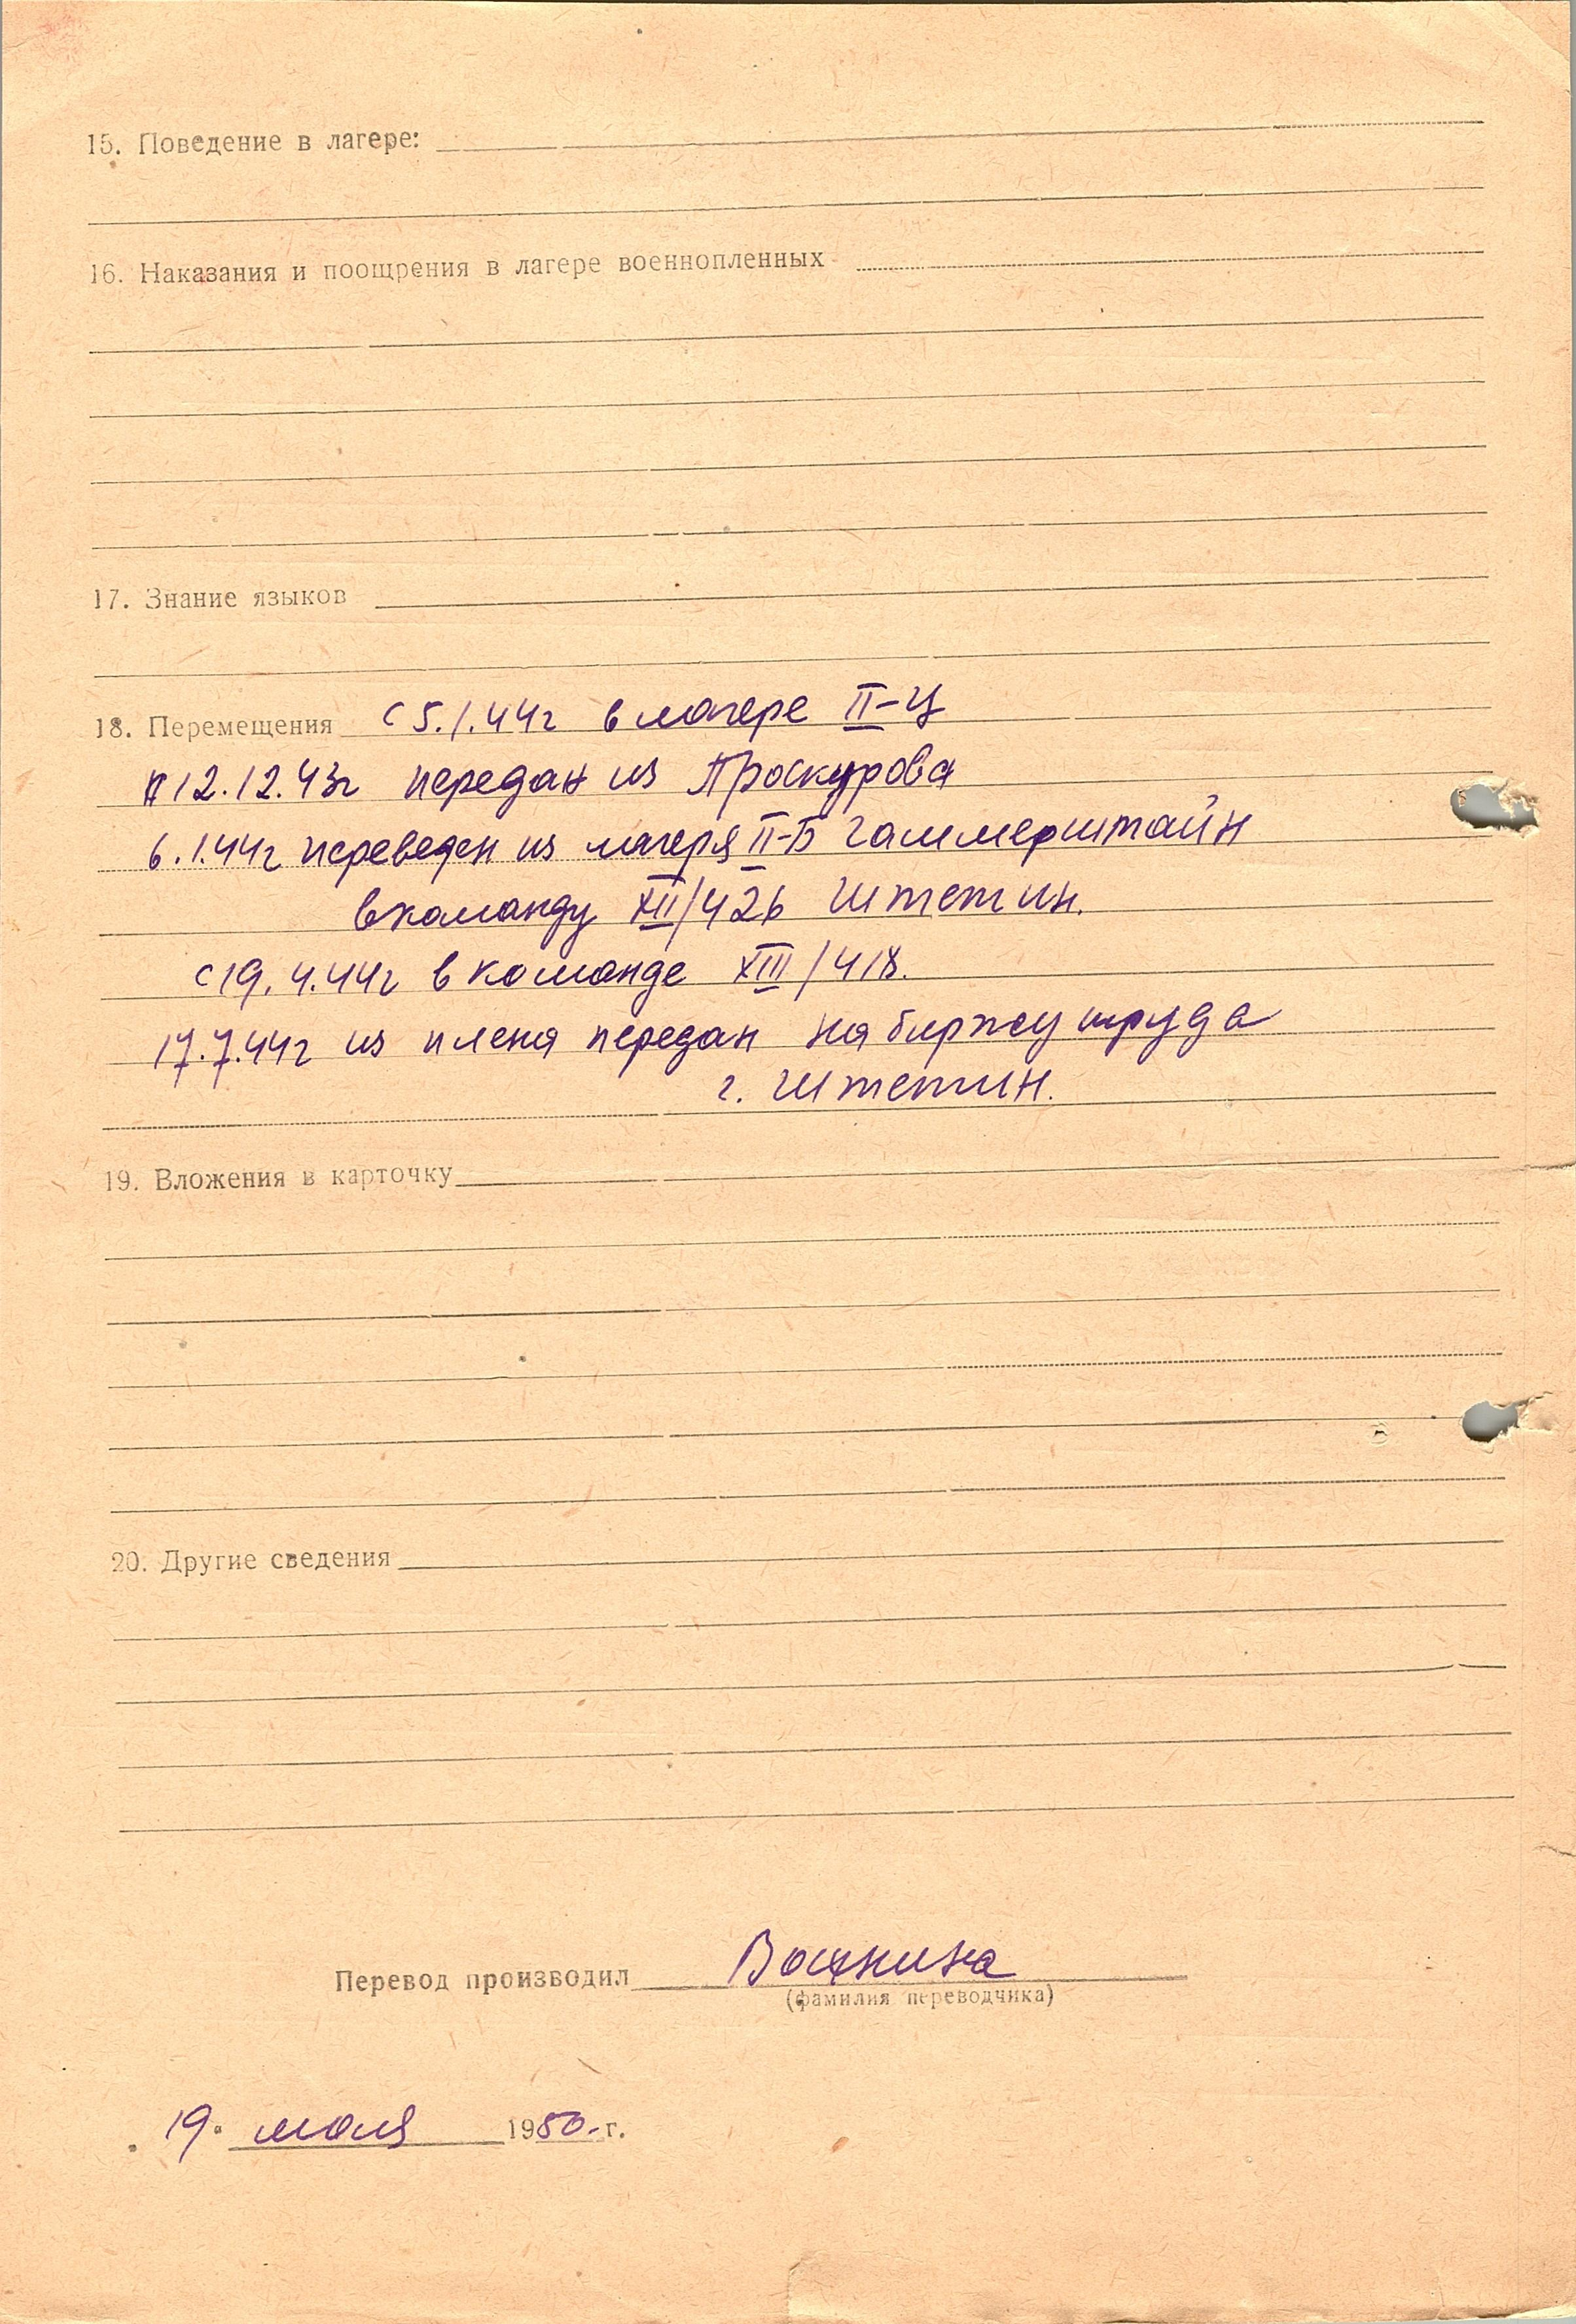 15. Поведение в лагере:
16. Наказания и поощрения в лагере военнопленных
17. Знание языков
18. Перемещения с 5.1.44г в лагере II-Ц
12.12.43г передан из Проскурова
6.1.44г переведен из лагеря II-Б Гаммерштайн
в команду XII/426 Штетин.
с 19.4.44г в команде XIII/418.
17.7.44г из плена передан на биржу труда
г. Штетин.
19. Вложения в карточку
20. Другие сведения
Перевод производил
(фамилия переводчика)
19. мая 1950.г.